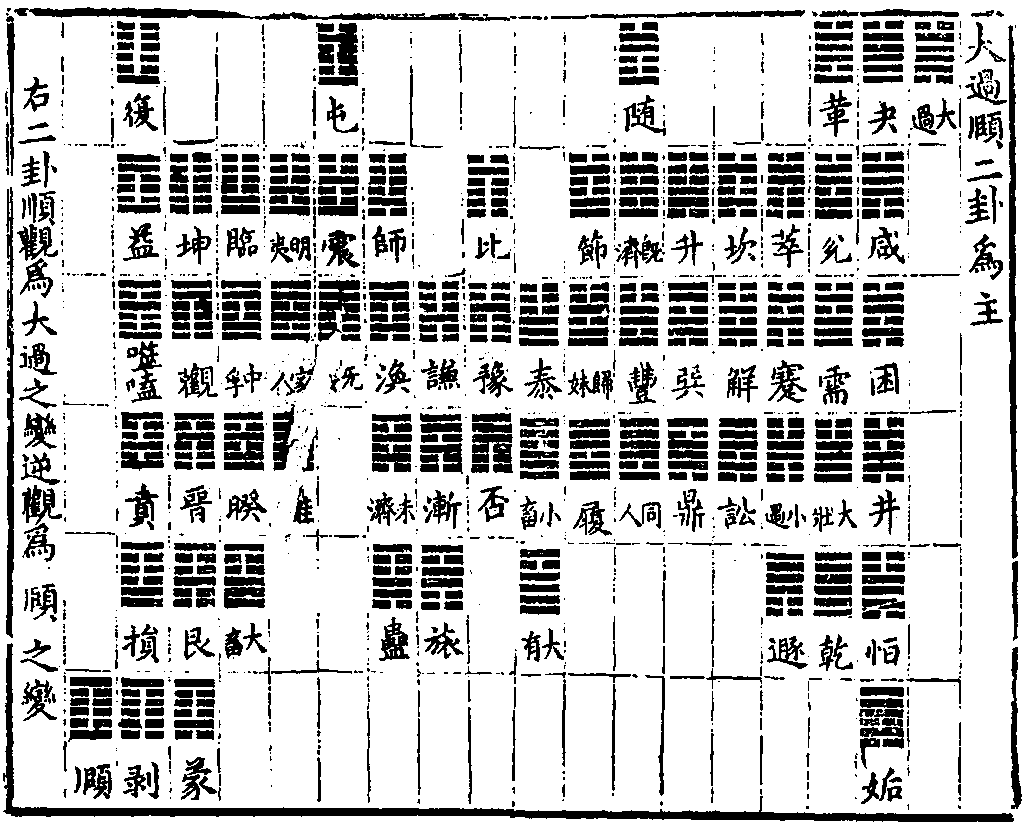 大過頤二卦爲主
大過
夬
咸
困
井
恒
姤
革
兌
需
大壯
乾
萃
蹇
小過
遯
坎
解
訟
升
巽
鼎
随
既濟
豐
同人
節
歸妹
履
泰
小畜
大有
比
豫
否
謙
漸
旅
師
渙
未濟
蠱
屯
震
无
明夷
家人
臨
中孚
睽
大畜
坤
觀
晉
艮
蒙
復
益
噬嗑
賁
損
剥
頤
右二卦順觀爲大過之變逆觀爲頤之變